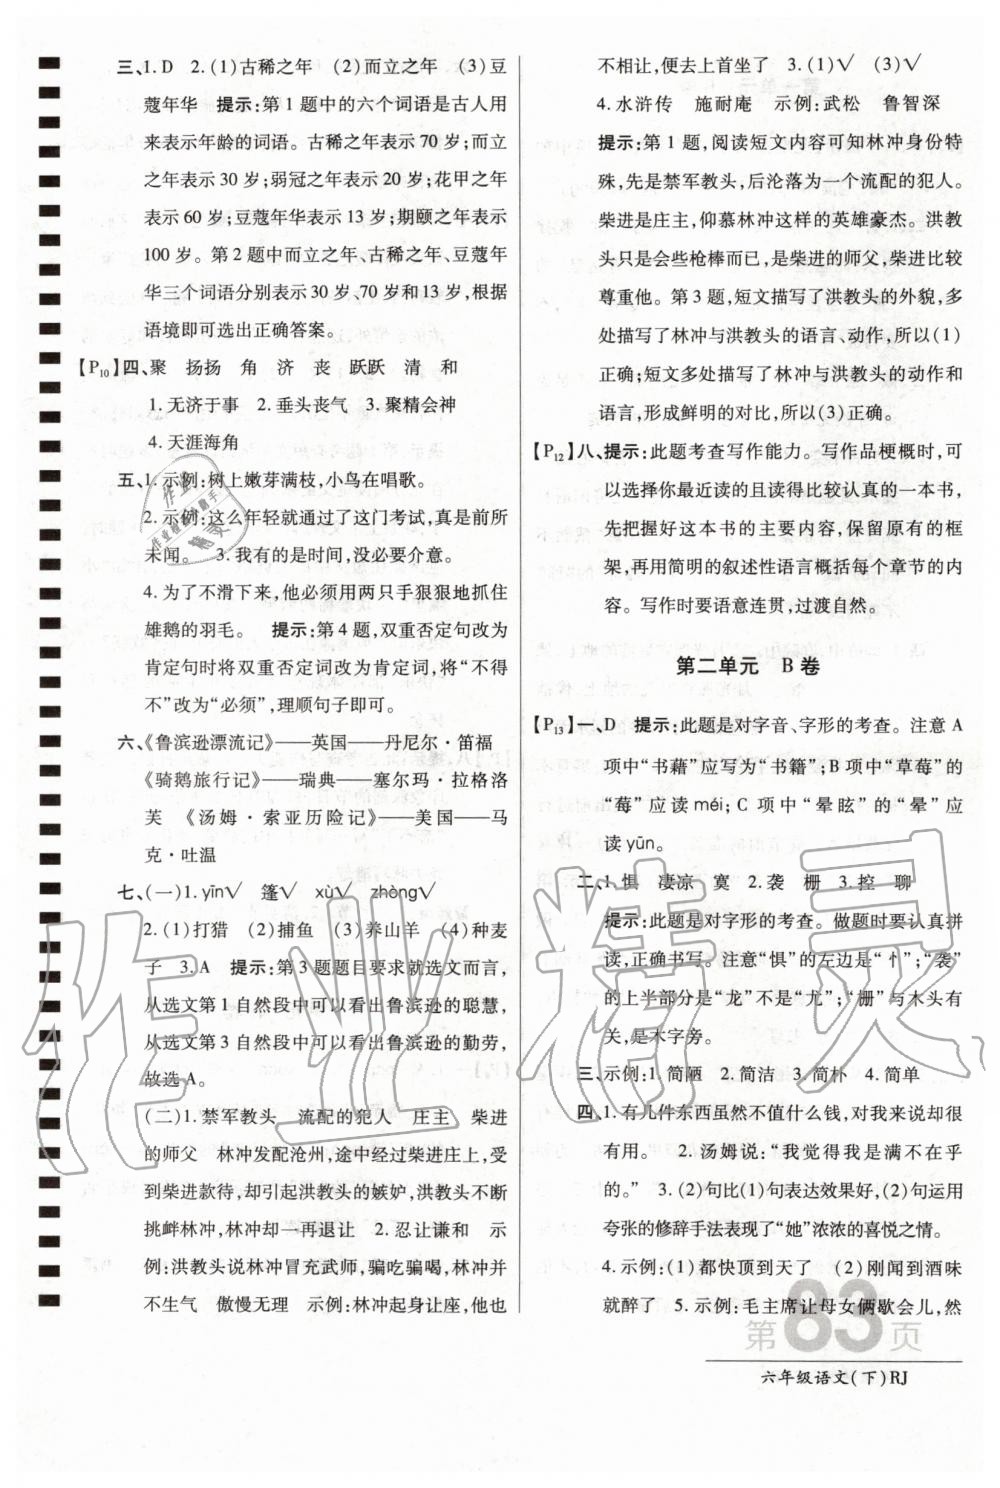 三、1. D　2. (1)古稀之年　(2)而立之年　(3)豆
蔻年华　提示:第 1 题中的六个词语是古人用
来表示年龄的词语。古稀之年表示 70 岁;而立
之年表示 30 岁;弱冠之年表示 20 岁;花甲之年
表示 60 岁;豆蔻年华表示 13 岁;期颐之年表示
100 岁。第 2 题中而立之年、古稀之年、豆蔻年
华三个词语分别表示 30 岁、70 岁和 13 岁,根据
语境即可选出正确答案。
【P10】四、聚　扬扬　角　济　丧　跃跃　清　和
1. 无济于事　2. 垂头丧气　3. 聚精会神
4. 天涯海角
五、1. 示例:树上嫩芽满枝,小鸟在唱歌。
2. 示例:这么年轻就通过了这门考试,真是前所
未闻。　3. 我有的是时间,没必要介意。
4. 为了不滑下来,他必须用两只手狠狠地抓住
雄鹅的羽毛。　提示:第 4 题,双重否定句改为
肯定句时将双重否定词改为肯定词,将“不得
不”改为“必须”,理顺句子即可。
六、《鲁滨逊漂流记》——英国——丹尼尔·笛福
《骑鹅旅行记》——瑞典——塞尔玛·拉格洛
芙　《汤姆·索亚历险记》——美国——马
克·吐温
七、(一)1. yīn√　篷√　xù√　zhòng√
2. (1)打猎　(2)捕鱼　(3)养山羊　(4)种麦
子　3. A　提示:第 3 题题目要求就选文而言,
从选文第 1 自然段中可以看出鲁滨逊的聪慧,
从选文第 3 自然段中可以看出鲁滨逊的勤劳,
故选 A。
(二)1. 禁军教头　流配的犯人　庄主　柴进
的师父　林冲发配沧州,途中经过柴进庄上,受
到柴进款待,却引起洪教头的嫉妒,洪教头不断
挑衅林冲,林冲却一再退让　2. 忍让谦和　示
例:洪教头说林冲冒充武师,骗吃骗喝,林冲并
不生气　傲慢无理　示例:林冲起身让座,他也
不相让,便去上首坐了　3. (1)√　(3)√
4. 水浒传　施耐庵　示例:武松　鲁智深
提示:第 1 题,阅读短文内容可知林冲身份特
殊,先是禁军教头,后沦落为一个流配的犯人。
柴进是庄主,仰慕林冲这样的英雄豪杰。洪教
头只是会些枪棒而已,是柴进的师父,柴进比较
尊重他。第 3 题,短文描写了洪教头的外貌,多
处描写了林冲与洪教头的语言、动作,所以(1)
正确;短文多处描写了林冲与洪教头的动作和
语言,形成鲜明的对比,所以(3)正确。
【P12】八、提示:此题考查写作能力。写作品梗概时,可
以选择你最近读的且读得比较认真的一本书,
先把握好这本书的主要内容,保留原有的框
架,再用简明的叙述性语言概括每个章节的内
容。写作时要语意连贯,过渡自然。
第二单元　B 卷
【P13】一、D　提示:此题是对字音、字形的考查。注意 A
项中“书藉”应写为“书籍”;B 项中“草莓”的
“莓”应读 méi;C 项中“晕眩”的“晕”应
读 yūn。
二、1. 惧　凄凉　寞　2. 袭　栅　3. 控　聊
提示:此题是对字形的考查。做题时要认真拼
读,正确书写。注意“惧”的左边是“忄”;“袭”
的上半部分是“龙”不是“尤”;“栅”与木头有
关,是木字旁。
三、示例:1. 简陋　2. 简洁　3. 简朴　4. 简单
四、1. 有几件东西虽然不值什么钱,对我来说却很
有用。　2. 汤姆说:“我觉得我是满不在乎
的。”　3. (2)句比(1)句表达效果好,(2)句运用
夸张的修辞手法表现了“她”浓浓的喜悦之情。
4. 示例:(1)都快顶到天了　(2)刚闻到酒味
就醉了　5. 示例:毛主席让母女俩歇会儿,然
第83页
六年级语文(下)RJ
作业精灵